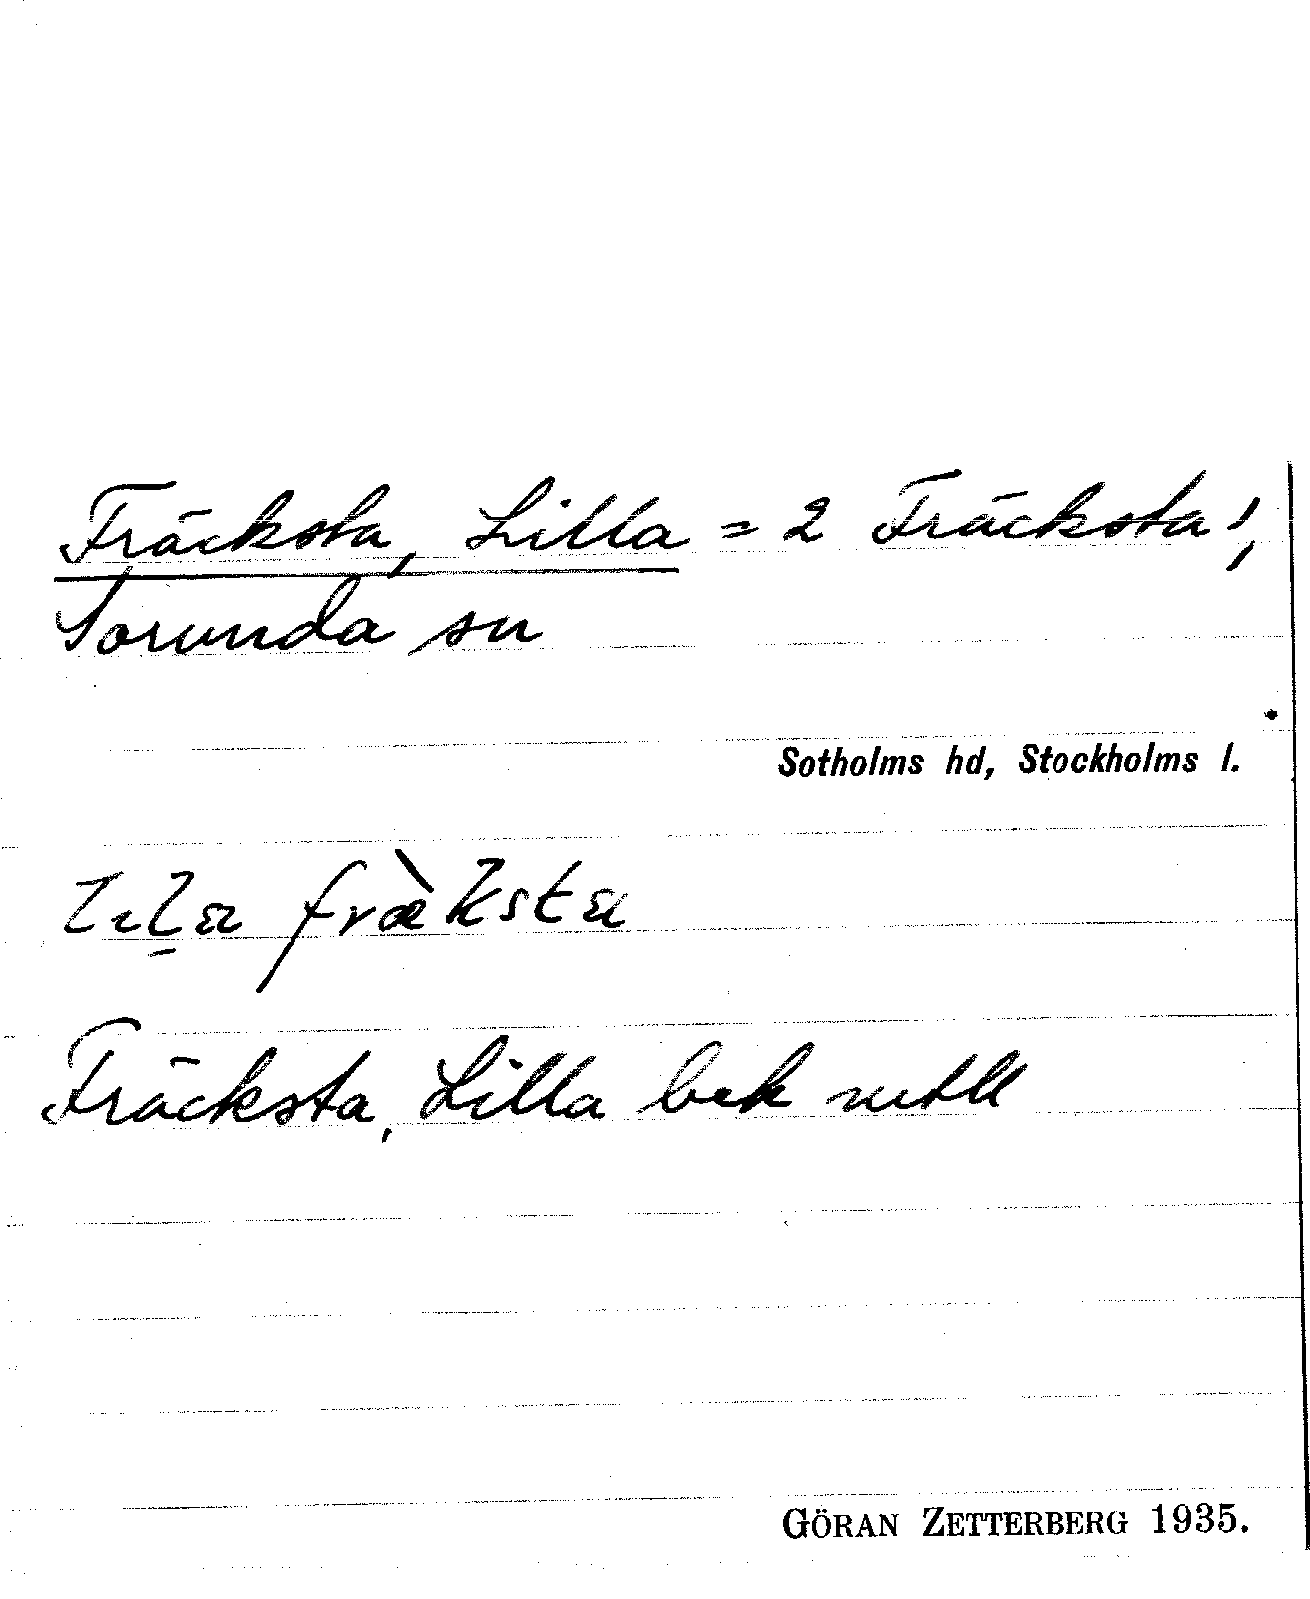 Fräcksta, Lilla = 2 Fräcksta!,
Sorunda sn
Sotholms hd, Stockholms l.
fræ̀ksta
Fräcksta, Lilla bek
GÖRAN ZETTERBERG 1935.